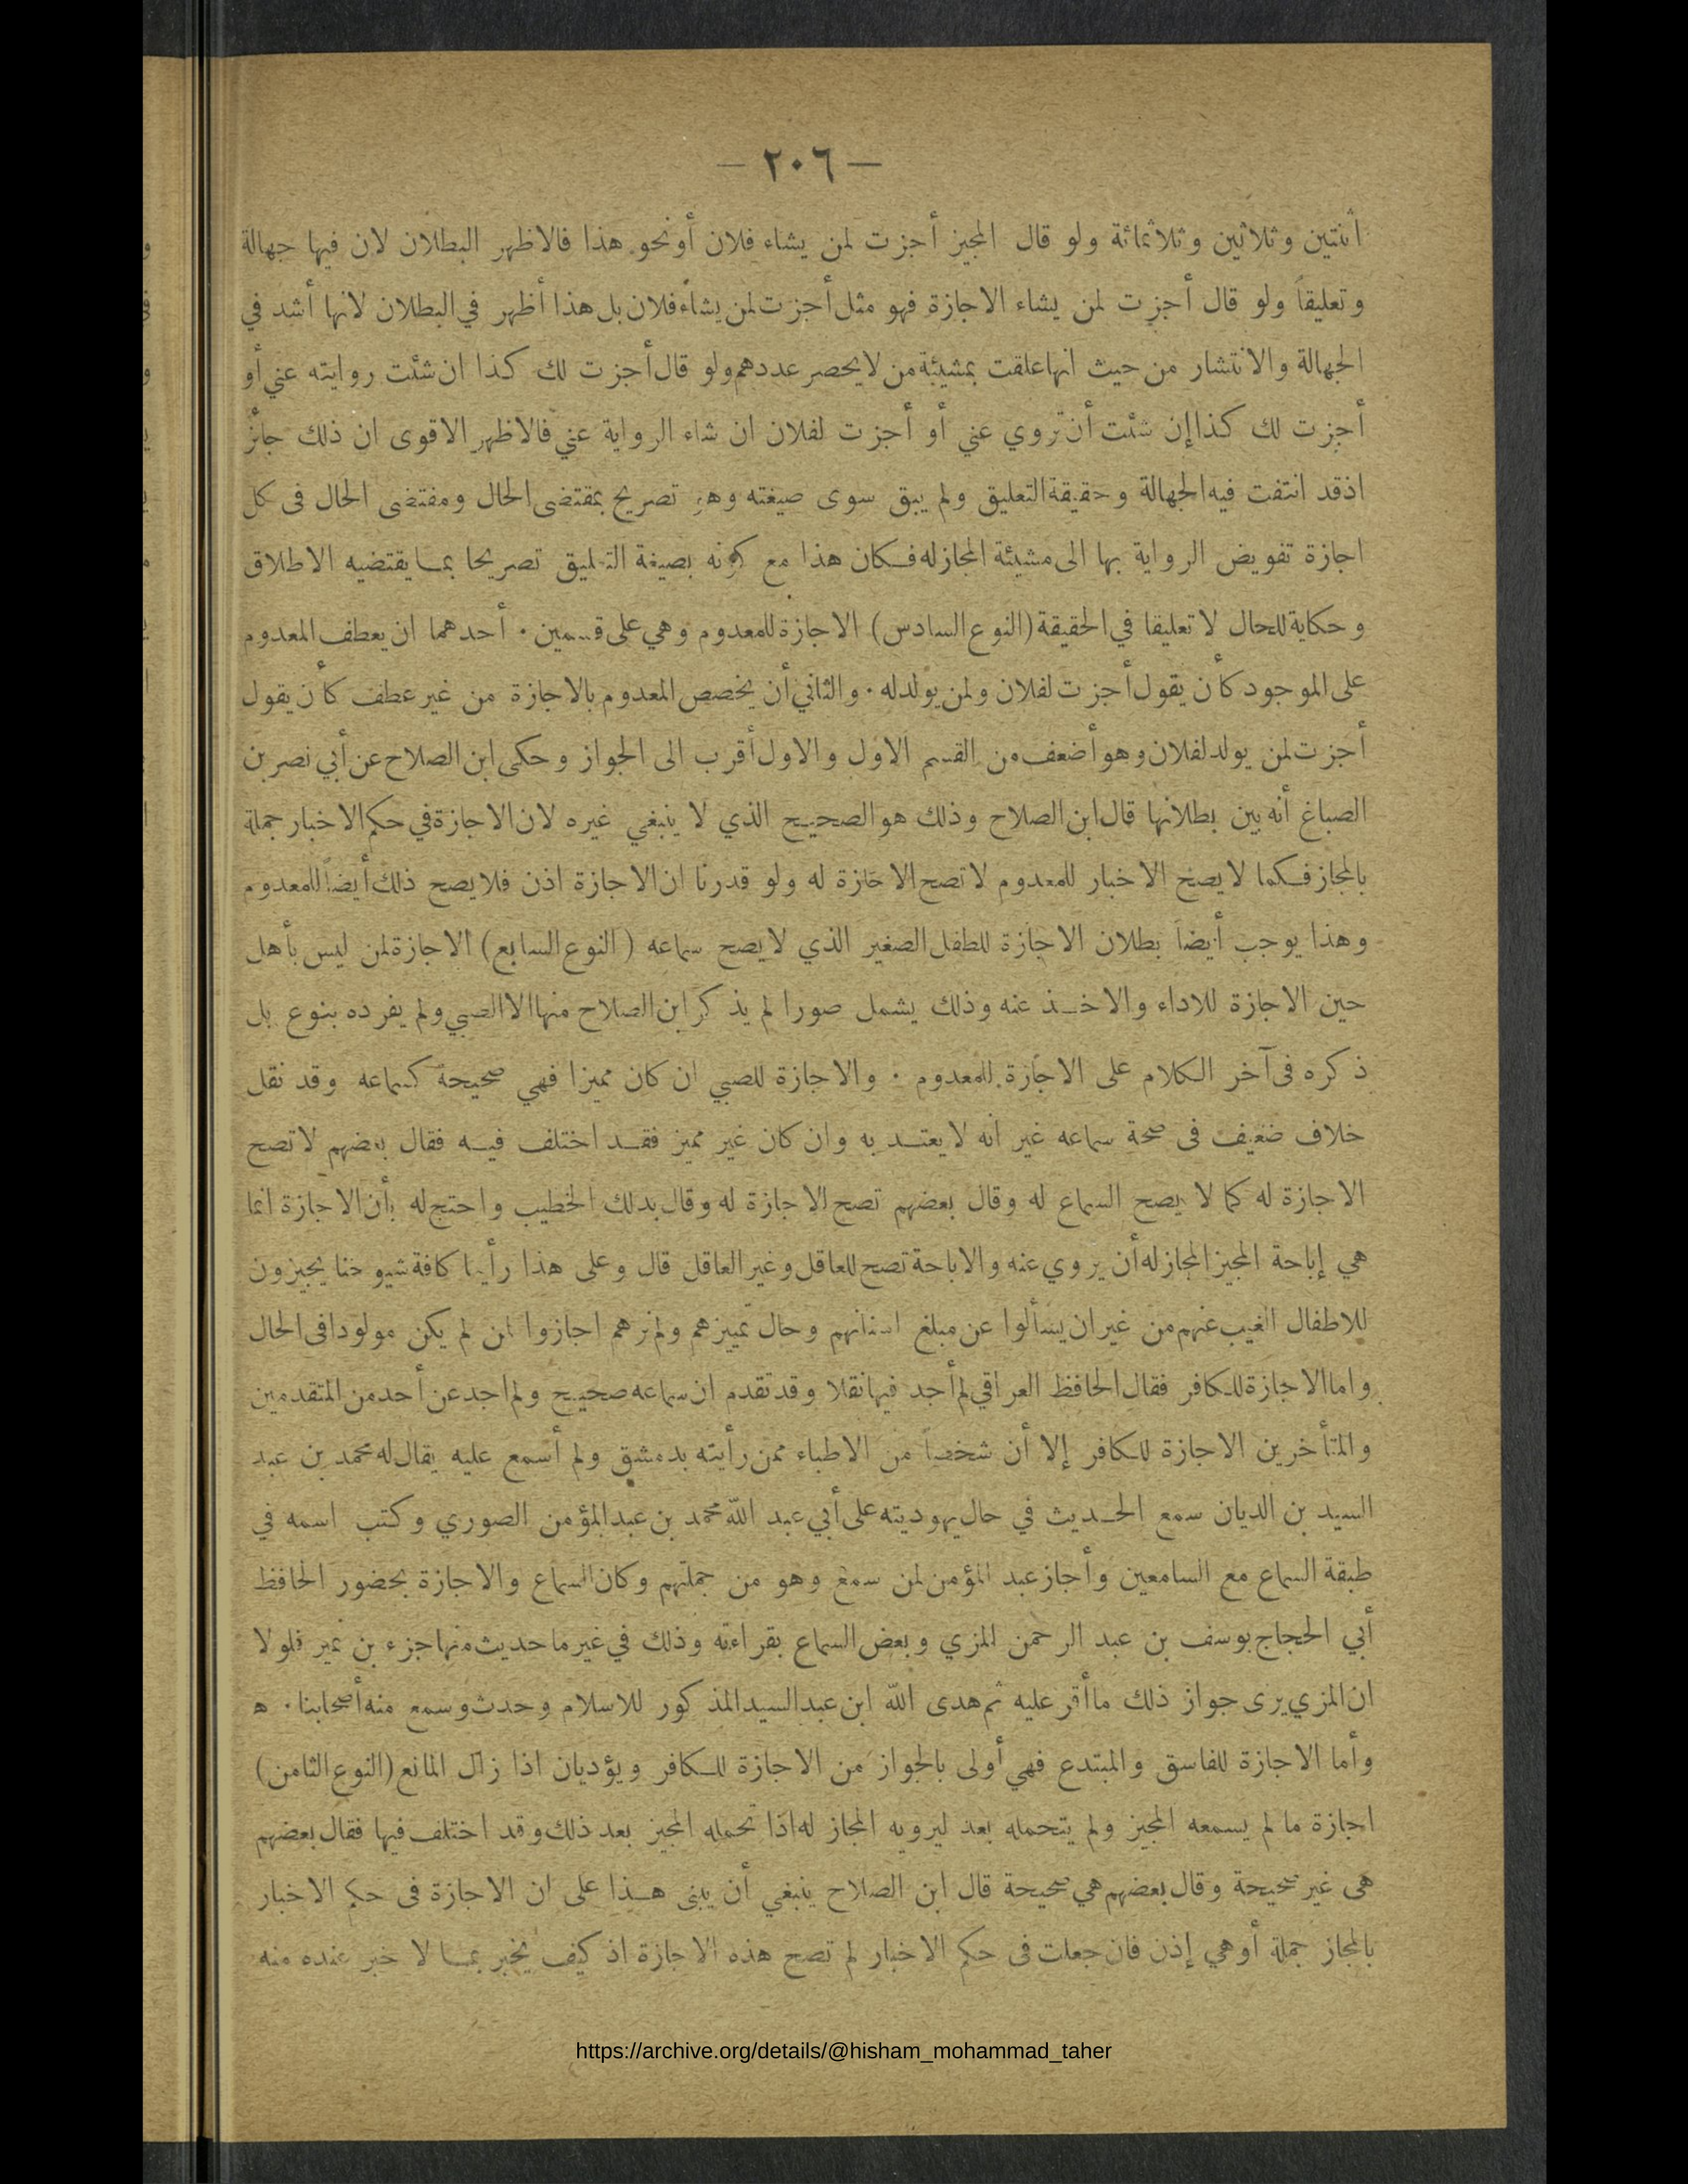 — ٢٠٦ —
اثنتين وثلاثين وثلاثمائة ولو قال المجيز أجزت لمن يشاء فلان أونحو هذا فالاظهر البطلان لان فيها جهالة
وتعليقاً ولو قال أجزت لمن يشاء الاجازة فهو مثل أجزت لمن يشاء فلان بل هذا أظهر في البطلان لانها أشد في
الجهالة والانتشار من حيث انها علقت بمشيئة من لا يحصر عددهم ولو قال أجزت لك كذا ان شئت روايته عني أو
أجزت لك كذا إن شئت أن تروي عني أو أجزت لفلان ان شاء الرواية عني فالاظهر الاقوى ان ذلك جائز
اذقد انتفت فيه الجهالة وحقيقة التعليق ولم يبق سوى صيغته وهي تصريح بمقتضى الحال ومقتضى الحال فى كل
اجازة تفويض الرواية بها الى مشيئة المجازله فكان هذا مع كونه بصيغة التعليق تصريحا بما يقتضيه الاطلاق
وحكاية للحال لا تعليقا في الحقيقة (النوع السادس) الاجازة للمعدوم وهي على قسمين . أحدهما ان يعطف المعدوم
على الموجود كأن يقول أجزت لفلان ولمن يولدله . والثاني أن يخصص المعدوم بالاجازة من غير عطف كأن يقول
أجزت لمن يولد لفلان وهو أضعف من القسم الاول والاول أقرب الى الجواز وحكى ابن الصلاح عن أبي نصر بن
الصباغ أنه بين بطلانها قال ابن الصلاح وذلك هو الصحيح الذي لا ينبغي غيره لان الاجازة في حكم الاخبار جملة
بالمجاز فكما لا يصح الاخبار للمعدوم لا تصح الاجازة له ولو قدرنا ان الاجازة اذن فلا يصح ذلك أيضاً للمعدوم
وهذا يوجب أيضاً بطلان الاجازة للطفل الصغير الذي لا يصح سماعه (النوع السابع) الاجازة لمن ليس بأهل
حين الاجازة للاداء والاخذ عنه وذلك يشمل صورا لم يذكر ابن الصلاح منها الا الصبي ولم يفرده بنوع بل
ذكره فى آخر الكلام على الاجازة للمعدوم . والاجازة للصبي ان كان مميزا فهي صحيحة كسماعه وقد نقل
خلاف ضعيف فى صحة سماعه غير انه لا يعتد به وان كان غير مميز فقد اختلف فيه فقال بعضهم لا تصح
الاجازة له كما لا يصح السماع له وقال بعضهم تصح الاجازة له وقال بذلك الخطيب واحتج له بأن الاجازة انما
هي إباحة المجيز المجازله أن يروي عنه والاباحة تصح للعاقل وغير العاقل قال وعلى هذا رأينا كافة شيوخنا يجيزون
للاطفال الغيب عنهم من غير ان يسألوا عن مبلغ اسنانهم وحال تمييزهم ولم نرهم اجازوا لمن لم يكن مولودا فى الحال
واما الاجازة للكافر فقال الحافظ العراقي لم أجد فيها نقلا وقد تقدم ان سماعه صحيح ولم اجد عن أحد من المتقدمين
والمتأخرين الاجازة للكافر إلا أن شخصاً من الاطباء ممن رأيته بدمشق ولم أسمع عليه يقال له محمد بن عبد
السيد بن الديان سمع الحديث في حال يهوديته على أبي عبد الله محمد بن عبد المؤمن الصوري وكتب اسمه في
طبقة السماع مع السامعين وأجاز عبد المؤمن لمن سمع وهو من جملتهم وكان السماع والاجازة بحضور الحافظ
أبي الحجاج يوسف بن عبد الرحمن المزي وبعض السماع بقراءته وذلك في غير ما حديث منها جزء بن نمير فلولا
ان المزي يرى جواز ذلك ما أقر عليه ثم هدى الله ابن عبد السيد المذكور للاسلام وحدث وسمع منه أصحابنا . ه
وأما الاجازة للفاسق والمبتدع فهي أولى بالجواز من الاجازة للكافر ويؤديان اذا زال المانع (النوع الثامن)
اجازة ما لم يسمعه المجيز ولم يتحمله بعد ليرويه المجاز له اذا تحمله المجيز بعد ذلك وقد اختلف فيها فقال بعضهم
هى غير صحيحة وقال بعضهم هي صحيحة قال ابن الصلاح ينبغي أن يبنى هذا على ان الاجازة فى حكم الاخبار
بالمجاز جملة أو هي إذن فان جعلت فى حكم الاخبار لم تصح هذه الاجازة اذ كيف يخبر بما لا خبر عنده منه
https://archive.org/details/@hisham_mohammad_taher